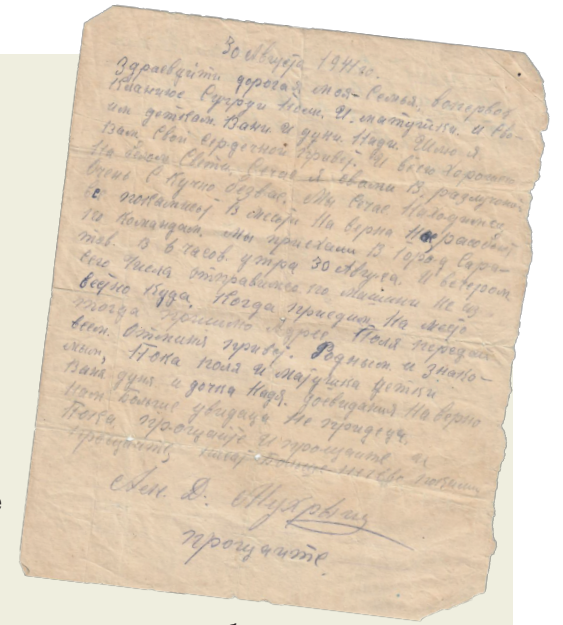 30 Августа 1941 го.
Здравствуйти дорогая моя Семья, вопервох
Кланиюс Супруги Поли. И. матушки. и сво-
им деткам. Вани. И дуни. Нади. Шлю я
Вам Свой Сердечной привет И всего хорошего
На белом Свети сечас я свами В разлучении
очено Скучно безвас. Мы Сечас Находимся
с В месте На верна
ти команда. Мы приехали В город Сара-
тов. В 6 часов. утра 30 Августа. И вечером
сего числа отправимся по машини Не из
вестно Куда. Когда приедим На место
тогда пришлю Адрес Поля передай
всем. Отминя привет. Родным и знако-
мым, Пока поля и матушка детки
Ваня дуня и дочка Надя. досвидания На верно
Нам больше увидаца Не придеца.
Пока прощайте И прощайте
прощайте
Д. Мухрыни
прощайте
е